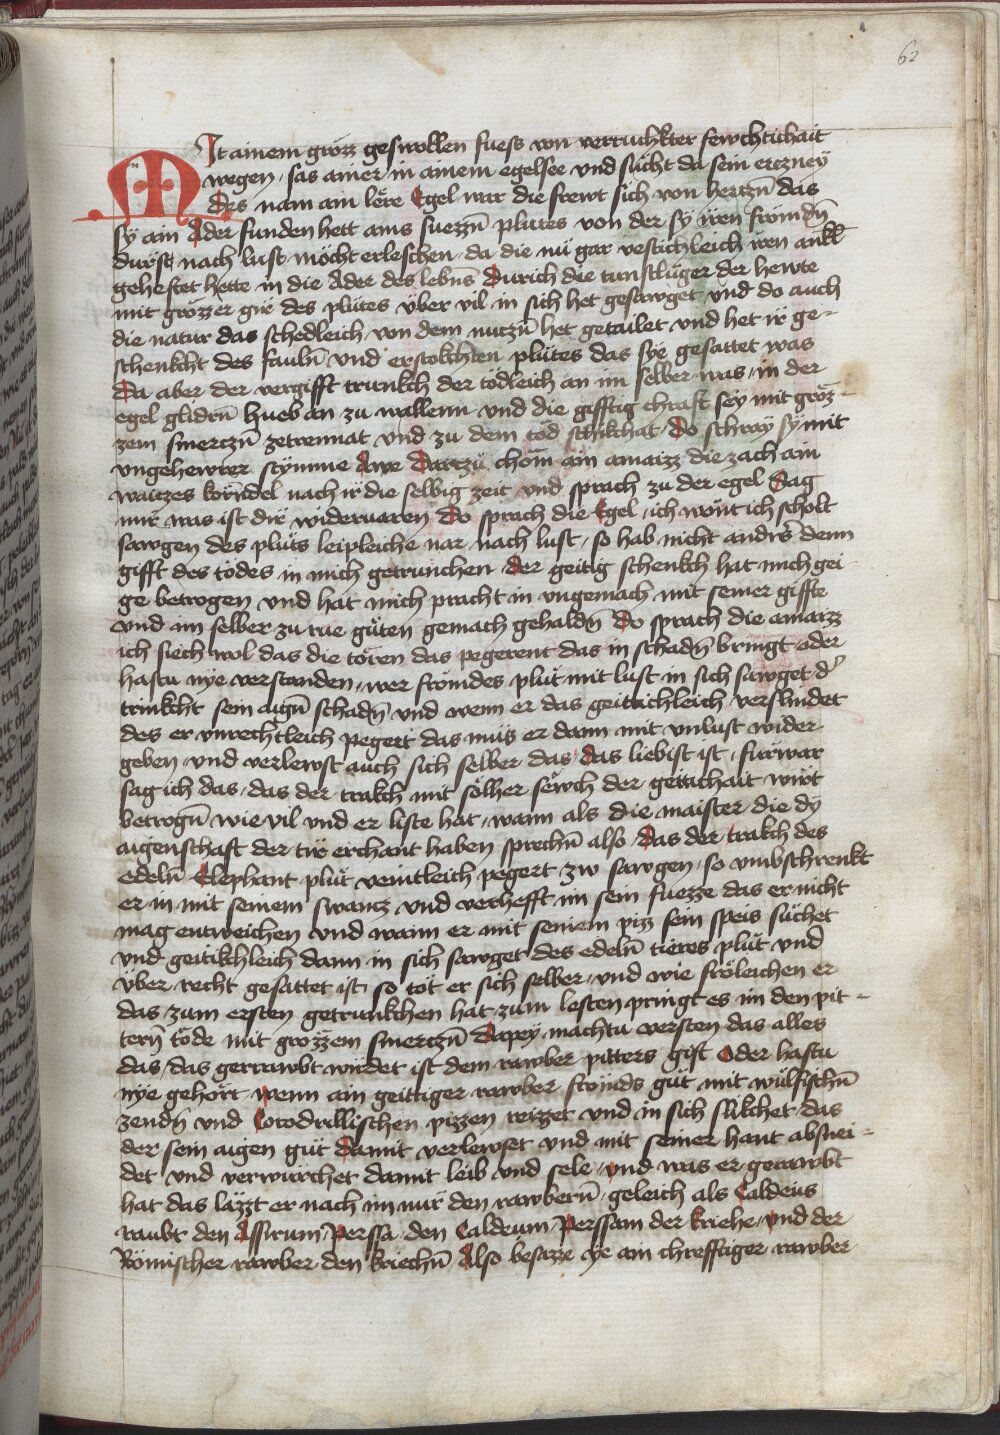 62
MIt ainem grozz geswollen fuess von verruchkter fewchtichait
wegen sas ainer in ainem egelsee vnd sücht da sein erczney
Des nam ain lëre Egel war die frewt sich von herczn̄ das
sy ain Ader funden hett ains suezzn̄ plutes von der sy iren frömdn̄
durst nach lust möcht erleschen da die nü gar vestichleich iren
geheftet hette in die Ader des lebns̄ Durich die tunstluger der hewte
mit grözzer gir des plütes über vil in sich het gesawget vnd do auch
die natur das schedleich von dem nuczn̄ het getailet vnd het ir ge-
schenkcht des fauln̄ vnd erstokchten plütes das sye gesattet was
Da aber der vergifft trunkch der tödleich an im selber was in der
egel glidrn̄ hueb an zu wallenn vnd die gifftig chraft sey mit gröz-
zem smerczn̄ zetrennat vnd zu dem töd schikchat Do schray sy mit
vngehewrer stymme Awe Darczü chöm ain amaizz die zach ain
waiczes körndel nach ir die selbig zeit vnd sprach zu der egel Sag
mir was ist dir wideruaren Do sprach die Egel ich wont ich scholt
sawgen des pluts leipleiche nar nach lust so hab nicht anders denn
gifft des tödes in mich getrunchen Der geitig schenkch hat mich gei-
ge betrogen vnd hat mich pracht in vngemach mit seiner giffte
vnd im selber zu rue güten gemach gehaldn̄ Do sprach die amaizz
ich siech wol das die tören das pegerent das in schadn̄ bringt oder
hastu nye verstanden wer frömdes plüt mit lust in sich sawget d'
trinkcht sein aign̄ schadn̄ vnd wenn er das geitichleich verslindet
des er vnrechtleich pegert das müs er dann mit vnlust wider
geben vnd verlewst auch sich selber das das liebist ist fürwar
sag ich das das der trakch mit sölher sewch der geitichait wirt
betrogn̄ wie vil vnd er liste hat wann als die maister die dy
aigenschaft der tir erchant haben sprechn̄ also Das der trakch des
edeln̄ Elephant plüt veintleich pegert zw sawgen so vmbschrenkt
er in mit seinem swancz vnd verhefft im sein fuezze das er nicht
mag entweichen vnd wann er mit seinem piz sein speis süchet
vnd geitikchleich dann in sich sawget des edeln̄ tieres plüt vnd
über recht gesattet ist so töt er sich selber vnd wie fröleichen er
das zum ersten getrunkchen hat zum lesten pringt es im den pit-
tern̄ töde mit grozzem smerczn̄ Dapey machtu versten das alles
das das gerrawbt würdet ist dem rawber pitters gift Oder hastu
nye gehört wenn ain geittiger rawber frömds güt mit wülfischn̄
zendn̄ vnd Cocodrillischen pizzen reizzet vnd in sich slikchet das
der sein aigen güt damit verlewset vnd mit seiner hant absnei-
det vnd verwürchet damit leib vnd sele vnd was er gerawbt
hat das läzzt er nach im nur den rawbern̄ geleich als Caldeus
raubt den Assirum Perssa den Caldeum Perssam der kriehe vnd der
Römischer rawber den kriechn̄ Also besazze ye ain chrefftiger rawber